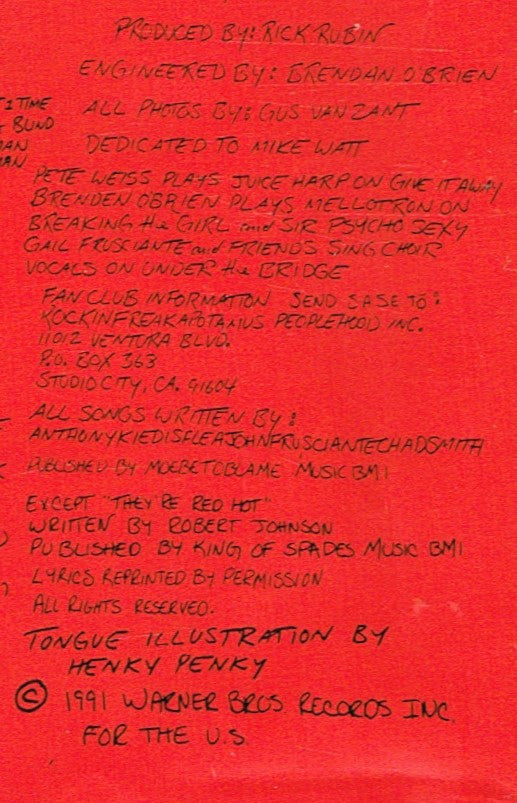 PRODUCED BY: RICK RUBIN
ENGINEERED BY: BRENDAN O'BRIEN
ALL PHOTOS BY: GUS VAN ZANT
DEDICATED TO MIKE WATT
TIME
BLIND
PETE WEISS PLAYS JUICE HARP ON GIVE IT AWAY
BRENDEN OBRIEN PLAYS MELLOTRON ON
BREAKING the GIRL and SIR PSYCHO SEXY
GAIL FRUSCIANTE and FRIENDS SING CHOIR
VOCALS ON UNDER the BRIDGE
FAN CLUB INFORMATION SEND SASE TO:
ROCKINFREAKAPOTAMUS PEOPLEHOOD INC.
11012 VENTURA BLVD.
P.O. BOX 363
STUDIO CITY, CA. 91604
ALL SONGS WRITTEN BY:
ANTHONYKIEDISFLEAJOHNFRUSCIANTECHADSMITH
PUBLISHED BY MOEBETOBLAME MUSIC BMI
EXCEPT "THEY'RE RED HOT"
WRITTEN BY ROBERT JOHNSON
PUBLISHED BY KING OF SPADES MUSIC BMI
LYRICS REPRINTED BY PERMISSION
ALL RIGHTS RESERVED.
TONGUE ILLUSTRATION BY
HENKY PENKY
© 1991 WARNER BROS. RECORDS INC.
FOR THE U.S.